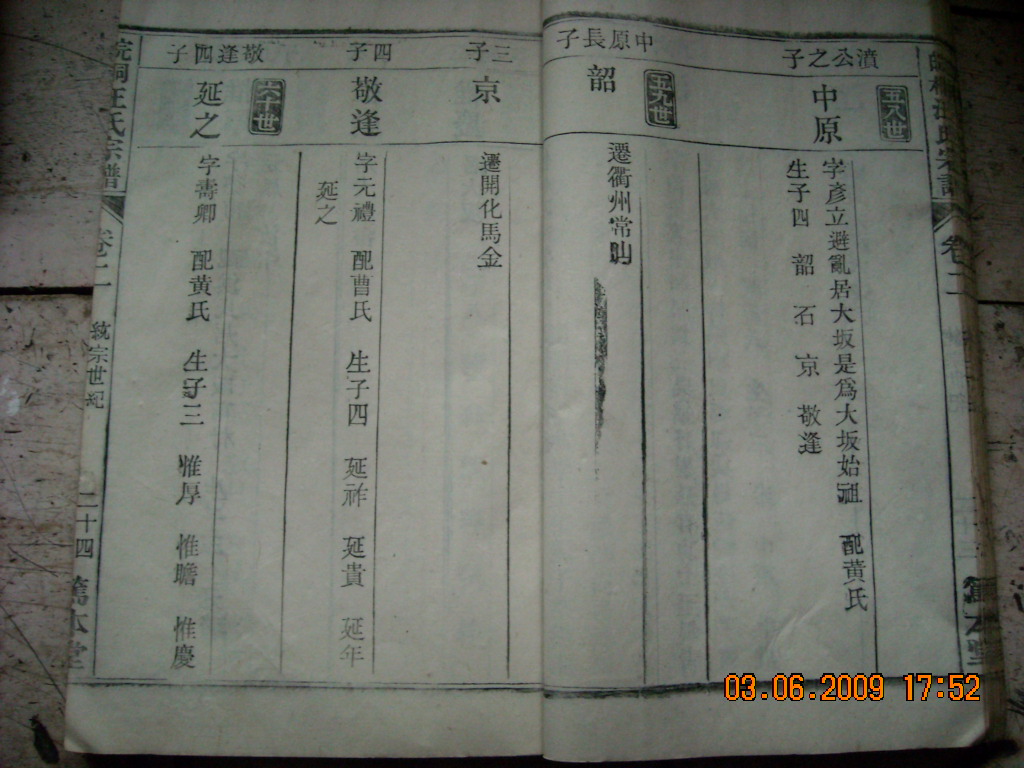 濆公之子
五八世
中原
字彦立避亂居大坂是爲大坂始祖 配黄氏
生子四 韶 石 京 敬逢
中原長子
五九世
韶
遷衢州常山
三子
京
遷開化馬金
四子
敬逢
字元禮 配曹氏 生子四 延祚 延貴 延年
延之
敬逢四子
六十世
延之
字壽卿 配黄氏 生子三 惟厚 惟瞻 惟慶
皖桐汪氏宗譜
卷二
統宗世紀
二十四
篤本堂
卷二
篤本堂
03.06.2009 17:52